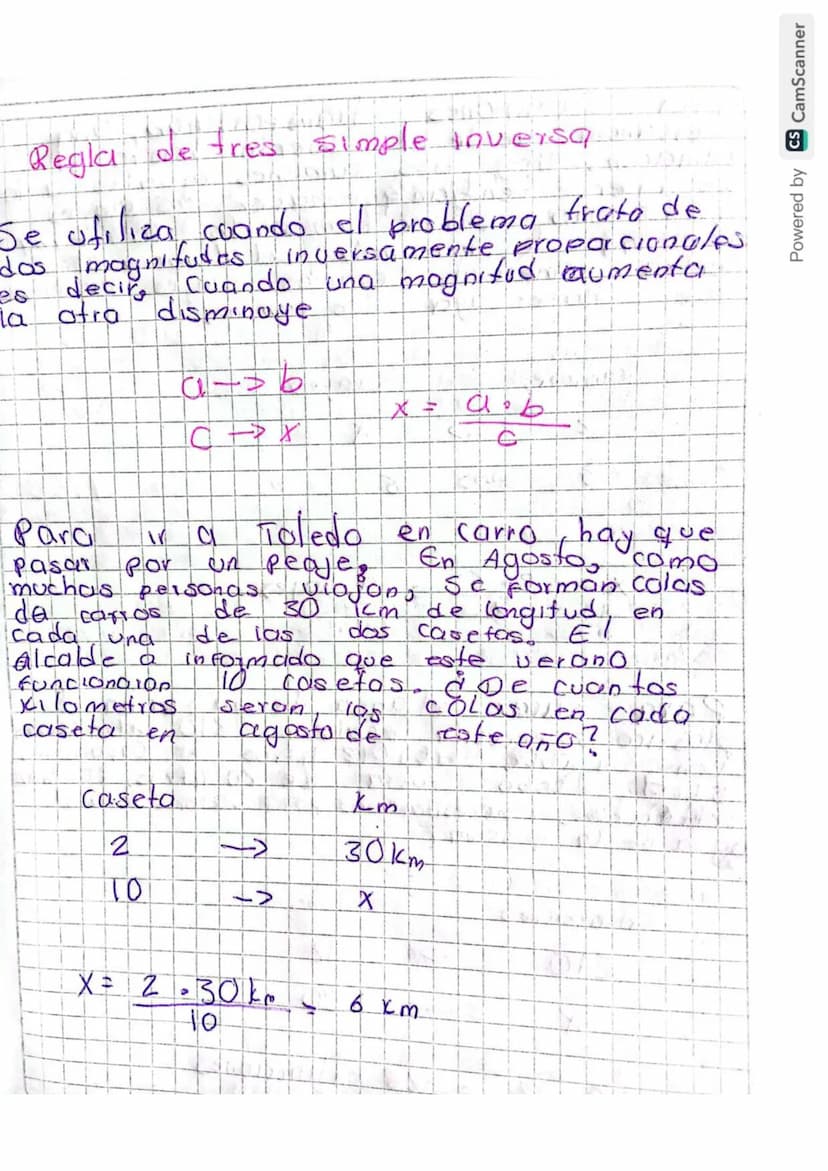 Regla de tres simple inversa
Se utiliza cuando el problema trata de
dos magnitudes inversamente proporcionales
es decir, Cuando una magnitud aumenta
la otra disminuye
a -> b
c -> x
x = a · b
c
Para ir a Toledo en carro, hay que
pasar por un peaje, En Agosto, como
muchas personas viajan, se forman colas
de carros de 30 km de longitud, en
cada una de las dos casetas. El
alcalde a informado que este verano
funcionarón 10 casetas. ¿De cuantos
kilometros seran las colas en cada
caseta en agosto de este año?
caseta km
2 -> 30 km
10 -> x
x = 2 · 30 km = 6 km
10
Powered by CS CamScanner